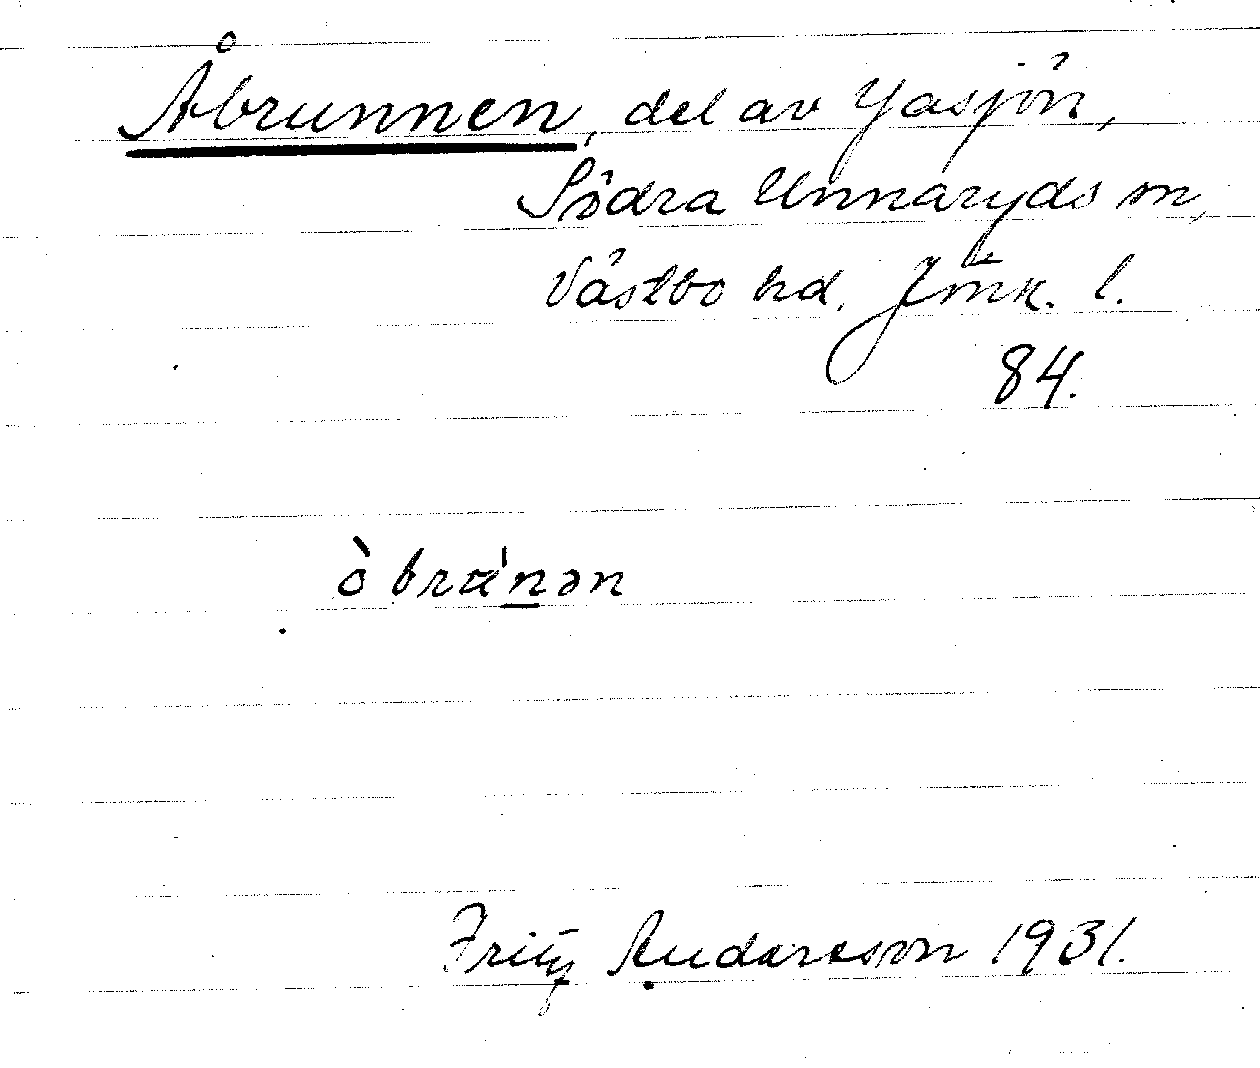 Åbrunnen, del av Yasjön,
Södra Unnaryds sn,
Västbo hd. Jönk. l.
84.
Fritz Andersson 1931.